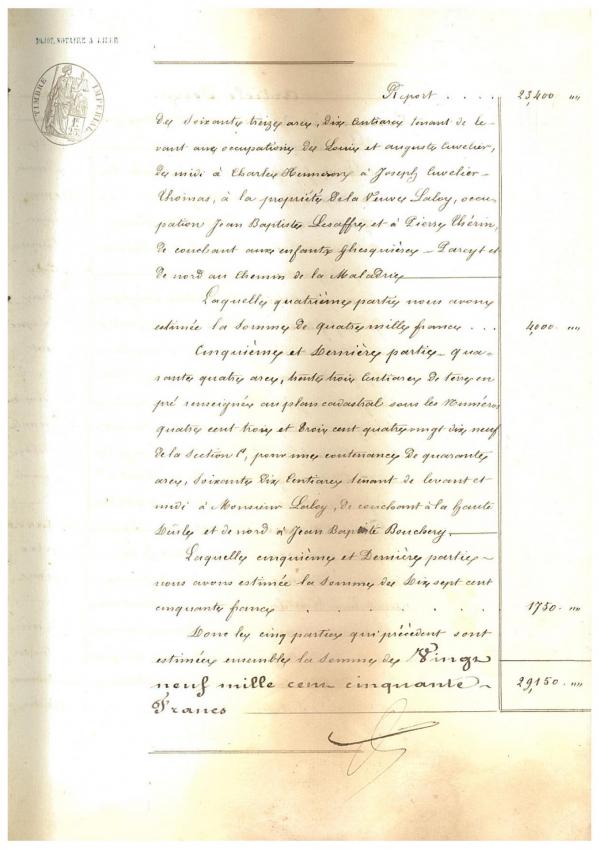 NOTAIRE A LILLE
TIMBRE IMPERIAL
Report . . . . 23,400 "
de soixante treize ares, dix centiares tenant de le-
vant aux occupations de Louis et auguste Cuvelier,
de midi à Charles Henneron à Joseph Cuvelier-
Thomas, à la propriété de la Veuve Laloy, occu-
pation Jean Baptiste Lesaffre et à Pierre Thérin,
de couchant aux enfants Ghesquière - Parcyt et
de nord au Chemin de la Maladrie
Laquelle quatrième partie nous avons
estimée la somme de quatre mille francs . . . 4,000 "
Cinquième et Dernière partie - qua-
rante quatre ares, trente trois Centiares de terre en
pré renseignée au plan cadastral sous les Numéros
quatre cent trois et trois cent quatre vingt dix neuf
de la section C, pour une contenance de quarante
ares, soixante dix Centiares tenant de levant et
midi à Monsieur Laloy, de couchant à la haute
Deûle et de nord à Jean Baptiste Bouchery.
Laquelle cinquième et Dernière partie -
nous avons estimée la somme de Dix sept cent
cinquante francs . . . . 1750 "
Donc les cinq parties qui précèdent sont
estimées ensemble la somme de Vingt
neuf mille cent cinquante - 29,150 "
Francs